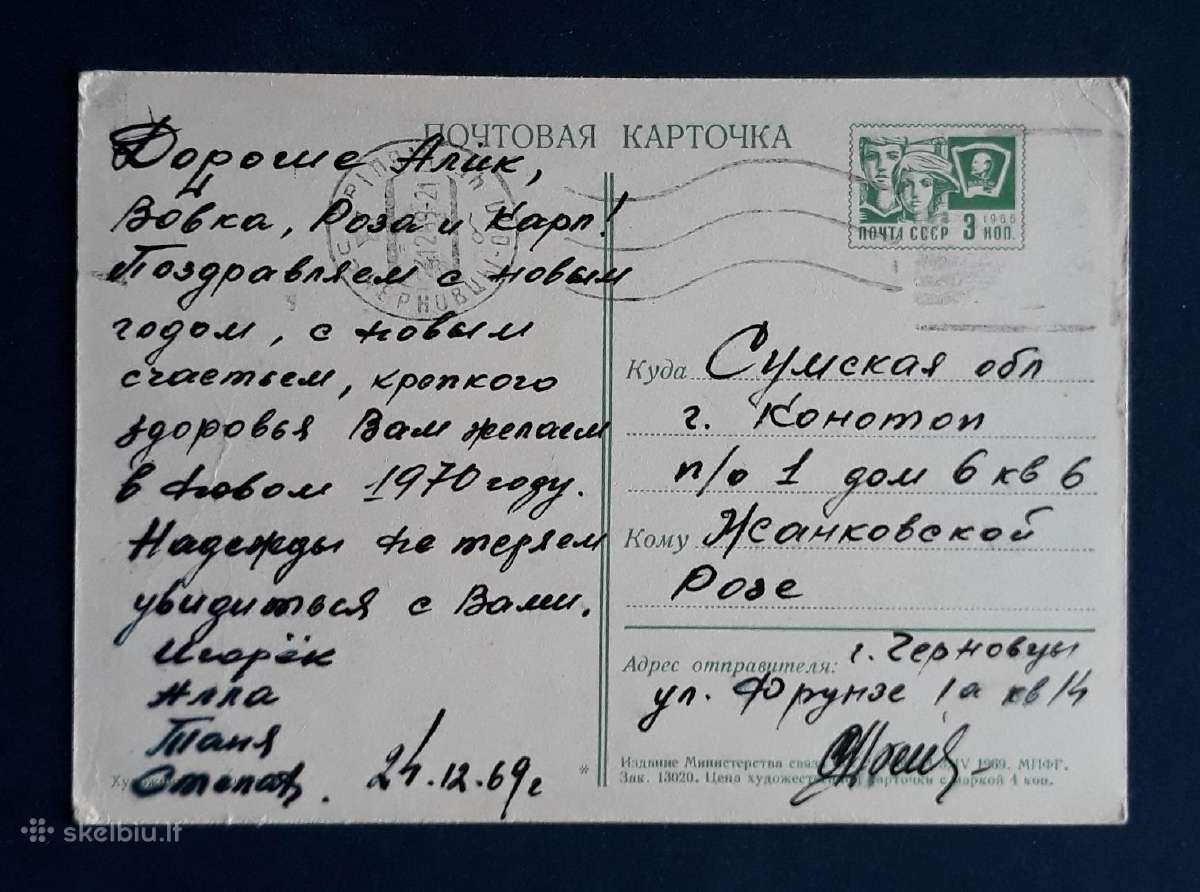 ПОЧТОВАЯ КАРТОЧКА
Дорогие Алик,
Вовка, Роза и Карл!
Поздравляем с новым
годом, с новым
счастьем, крепкого
здоровья Вам желаем
в новом 1970 году.
Надежды не теряем
увидиться с Вами.
Игорёк
Алла
Таня
Степан.
24.12.69 г
ПОЧТА СССР 3 КОП.
1966
ЧЕРНОВЦЫ
Куда Сумская обл
г. Конотоп
п/о 1 дом 6 кв 6
Кому Жанковской
Розе
Адрес отправителя: г. Черновцы
ул. Фрунзе 1а кв 14
Издание Министерства связ 1969. МПФГ.
Зак. 13020. Цена карточки с маркой 4 коп.
*
skelbiu.lt